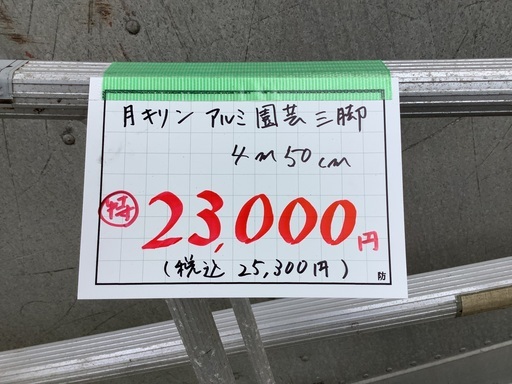 月キリン アルミ園芸三脚
4m50cm
特 23,000円
(税込 25,300円)
防